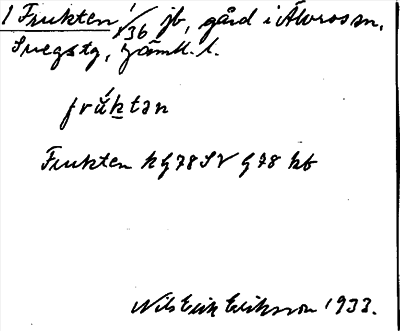 1 Frukten 1/36 jb, gård i Älvros sn,
Svegs tg, Jämtl. l.
frúktən
Frukten kg 78 SV g 78 kb
Nils Erik Eriksson 1933.